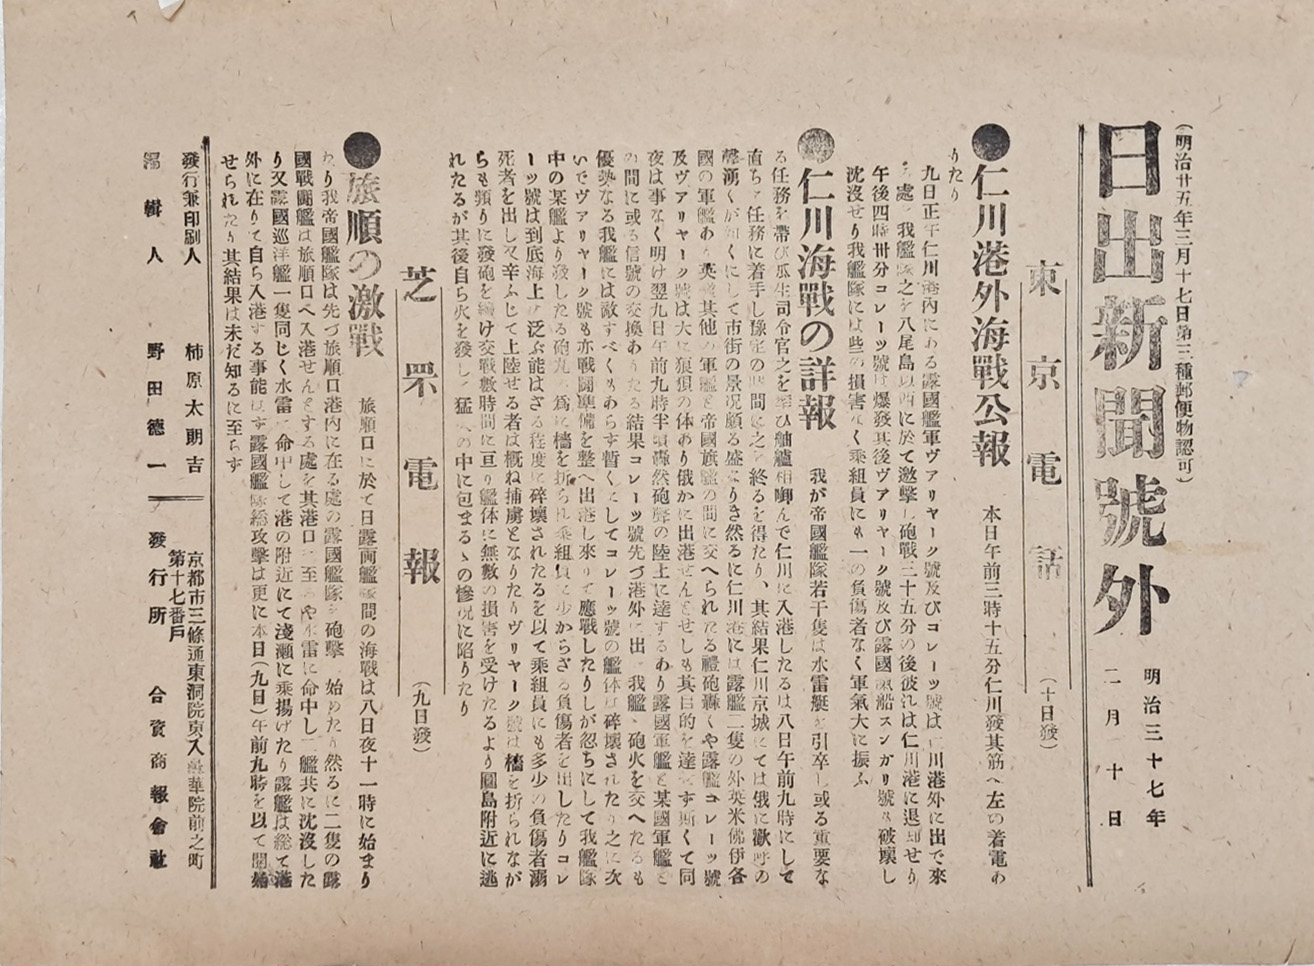 (明治廿五年三月十七日第三種郵便物認可)
日出新聞號外
明治三十七年
二月十日
東京電話
(十日發)
●仁川港外海戰公報
本日午前三時十五分仁川發其筋へ左の着電あ
りたり
九日正午仁川港内にある露國艦軍ヴァリヤーク號及びコレーツ號は仁川港外に出で來
る處を我艦隊之を八尾島以西に於て邀擊し砲戰三十五分の後彼れは仁川港に退却せり
午後四時卅分コレーツ號は爆發其後ヴァリヤーク號及び露國漁船スンガリ號も破壞し
沈沒せり我艦隊には些の損害なく乘組員にも一の負傷者なく軍氣大に振ふ
●仁川海戰の詳報
我が帝國艦隊若干隻は水雷艇を引卒し或る重要な
る任務を帶び瓜生司令官之を率ひ舳艫相啣んで仁川に入港したるは八日午前九時にして
直ちに任務に着手し豫定の時間に之を終るを得たり、其結果仁川京城にては俄に歡呼の
聲湧くが如くにして市街の景况頗る盛なりき然るに仁川港には露艦二隻の外英米佛伊各
國の軍艦あり英艦其他の軍艦と帝國旗艦の間に交へられたる禮砲轟くや露艦コレーツ號
及ヴァリヤーク號は大に狼狽の体あり俄かに出港せんとせしも其目的を達せず斯くて同
夜は事なく明け翌九日午前九時半頃轟然砲聲の陸上に達するあり露國軍艦と某國軍艦と
の間に或る信號の交換ありたる結果コレーツ號先づ港外に出で我艦と砲火を交へたるも
優勢なる我艦には敵すべくもあらず暫くにしてコレーツ號の艦体は碎壞されたり之に次
いでヴァリヤーク號も亦戰鬪準備を整へ出港し來りて應戰したりしが忽ちにして我艦隊
中の某艦より發したる砲丸の爲に檣を折られ乘組員に少からざる負傷者を出したりコレ
ーツ號は到底海上に泛ぶ能はざる程度に碎壞されたるを以て乘組員にも多少の負傷者溺
死者を出し又辛ふじて上陸せる者は概ね捕虜となりたりヴリヤーク號は檣を折られなが
らも頻りに發砲を續け交戰數時間に亘り艦体に無數の損害を受けたるより圓島附近に逃
れたるが其後自ら火を發して猛火の中に包まるゝの慘况に陷りたり
芝罘電報
(九日發)
●旅順の激戰
旅順口に於て日露両艦隊間の海戰は八日夜十一時に始まり
たり我帝國艦隊は先づ旅順口港内に在る處の露國艦隊を砲擊し始めたり然るに二隻の露
國戰鬪艦は旅順口へ入港せんとする處を其港口に至るや水雷に命中し二艦共に沈沒した
り又露國巡洋艦一隻同じく水雷に命中して港の附近にて淺瀬に乘揚げたり露艦は総て港
外に在りて自ら入港する事能はず露國艦隊総攻擊は更に本日(九日)午前九時を以て開始
せられたり其結果は未だ知るに至らず
發行兼印刷人 柿原太朗吉
編輯人 野田德一
京都市三條通東洞院東入 華院前之町
第十七番戶
發行所 合資商報會社